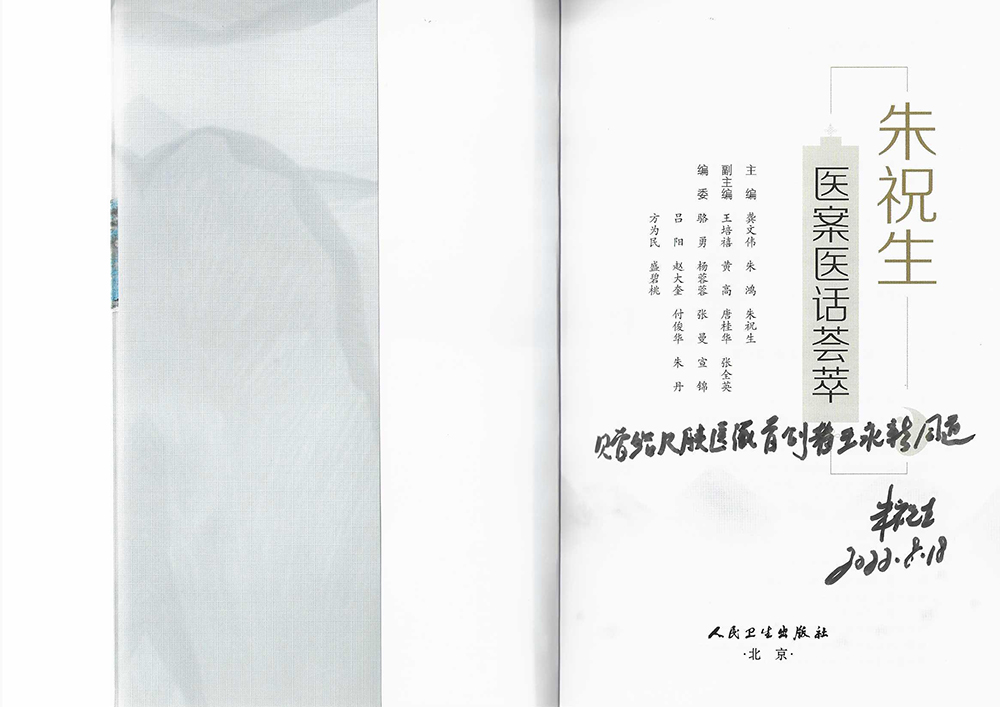 朱祝生
医案医话荟萃
主 编 龚文伟 朱 鸿 朱祝生
副主编 王培禧 黄 高 唐桂华 张全英
编 委 骆 勇 杨蓉蓉 张 曼 宣 锦
吕 阳 赵大奎 付俊华 朱 丹
方为民 盛碧桃
赠给尺肤医首创者王永新同道
朱祝生
2022.8.18
人民卫生出版社
·北 京·